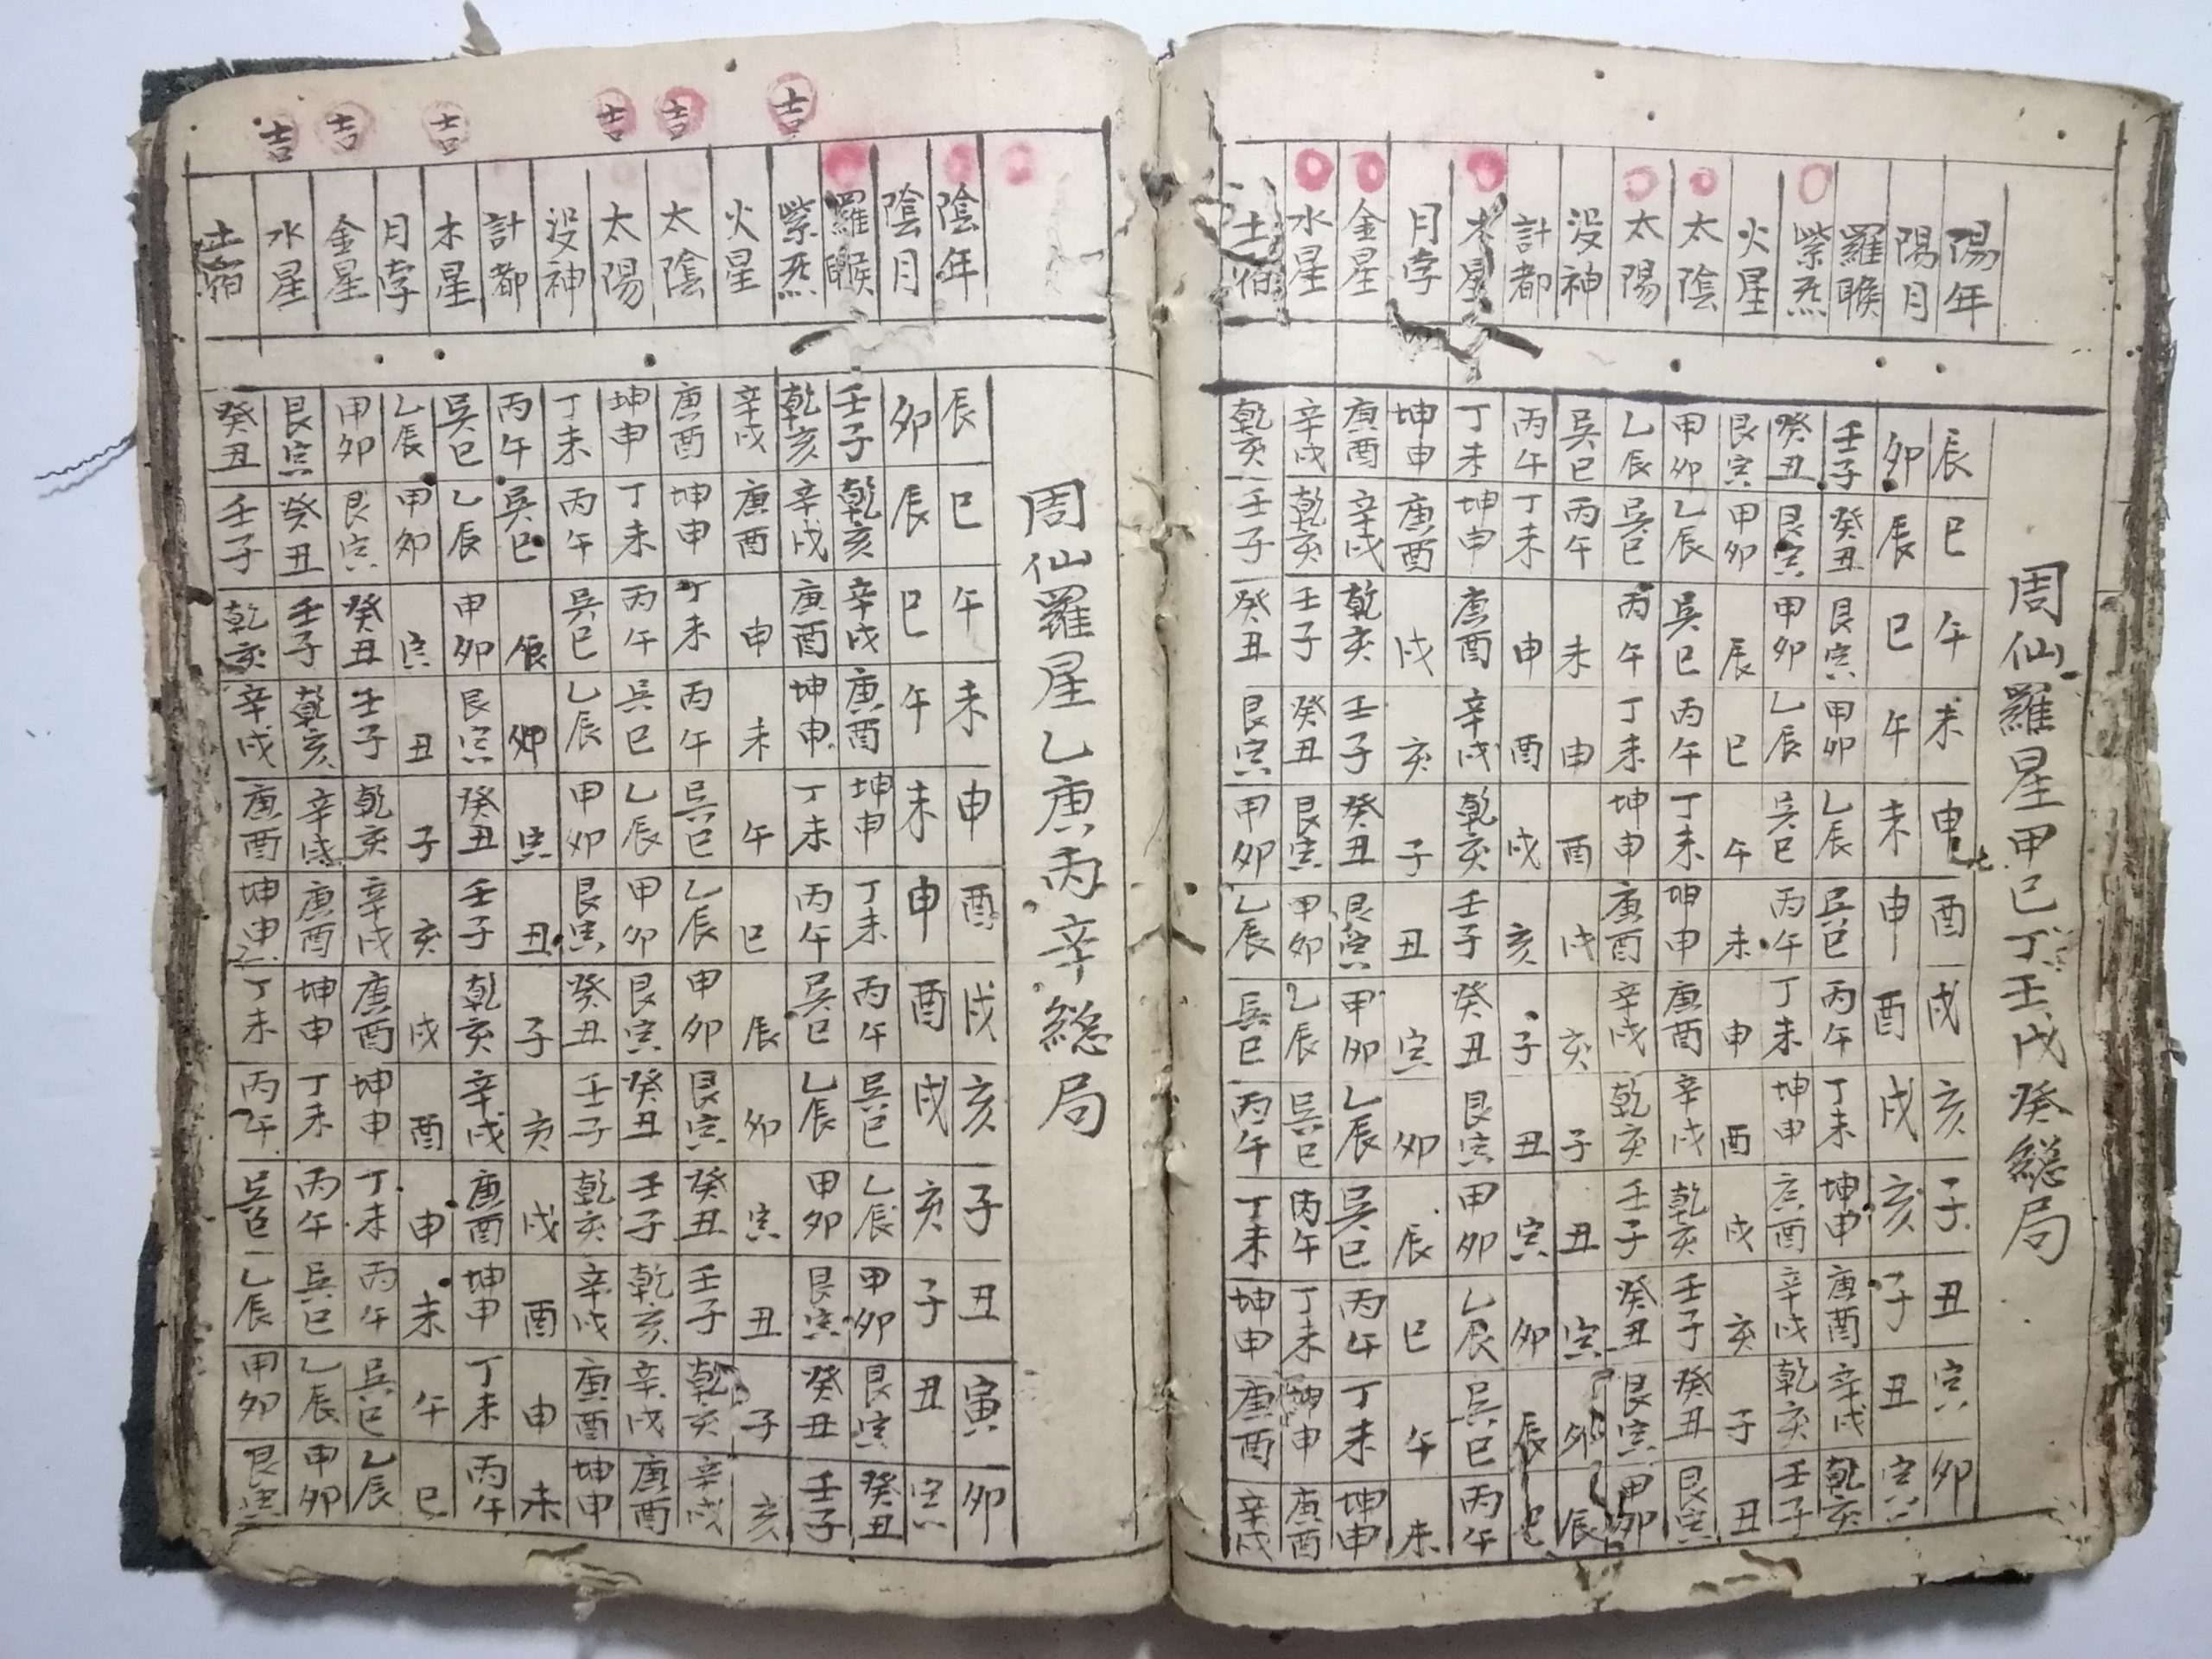 周仙羅星甲己丁壬戊癸緫局
陽年 辰 巳 午 未 申 酉 戌 亥 子 丑 寅 卯
陽月 卯 辰 巳 午 未 申 酉 戌 亥 子 丑 寅
羅睺 壬子 癸丑 艮寅 甲卯 乙辰 巽巳 丙午 丁未 坤申 庚酉 辛戌 乾亥
紫炁 癸丑 艮寅 甲卯 乙辰 巽巳 丙午 丁未 坤申 庚酉 辛戌 乾亥 壬子
火星 艮寅 甲卯 辰 巳 午 未 申 酉 戌 亥 子 丑
太陰 甲卯 乙辰 巽巳 丙午 丁未 坤申 庚酉 辛戌 乾亥 壬子 癸丑 艮寅
太陽 乙辰 巽巳 丙午 丁未 坤申 庚酉 辛戌 乾亥 壬子 癸丑 艮寅 甲卯
没神 巽巳 丙午 未 申 酉 戌 亥 子 丑 寅 卯 辰
計都 丙午 丁未 申 酉 戌 亥 子 丑 寅 卯 辰 巳
木星 丁未 坤申 庚酉 辛戌 乾亥 壬子 癸丑 艮寅 甲卯 乙辰 巽巳 丙午
月孛 坤申 庚酉 戌 亥 子 丑 寅 卯 辰 巳 午 未
金星 庚酉 辛戌 乾亥 壬子 癸丑 艮寅 甲卯 乙辰 巽巳 丙午 丁未 坤申
水星 辛戌 乾亥 壬子 癸丑 艮寅 甲卯 乙辰 巽巳 丙午 丁未 坤申 庚酉
土宿 乾亥 壬子 癸丑 艮寅 甲卯 乙辰 巽巳 丙午 丁未 坤申 庚酉 辛戌
周仙羅星乙庚丙辛緫局
陰年 辰 巳 午 未 申 酉 戌 亥 子 丑 寅 卯
陰月 卯 辰 巳 午 未 申 酉 戌 亥 子 丑 寅
羅睺 壬子 乾亥 辛戌 庚酉 坤申 丁未 丙午 巽巳 乙辰 甲卯 艮寅 癸丑
吉 紫炁 乾亥 辛戌 庚酉 坤申 丁未 丙午 巽巳 乙辰 甲卯 艮寅 癸丑 壬子
火星 辛戌 庚酉 申 未 午 巳 辰 卯 寅 丑 子 亥
吉 太陰 庚酉 坤申 丁未 丙午 巽巳 乙辰 甲卯 艮寅 癸丑 壬子 乾亥 辛戌
吉 太陽 坤申 丁未 丙午 巽巳 乙辰 甲卯 艮寅 癸丑 壬子 乾亥 辛戌 庚酉
没神 丁未 丙午 巽巳 乙辰 甲卯 艮寅 癸丑 壬子 乾亥 辛戌 庚酉 坤申
計都 丙午 巽巳 辰 卯 寅 丑 子 亥 戌 酉 申 未
吉 木星 巽巳 乙辰 甲卯 艮寅 癸丑 壬子 乾亥 辛戌 庚酉 坤申 丁未 丙午
月孛 乙辰 甲卯 寅 丑 子 亥 戌 酉 申 未 午 巳
吉 金星 甲卯 艮寅 癸丑 壬子 乾亥 辛戌 庚酉 坤申 丁未 丙午 巽巳 乙辰
吉 水星 艮寅 癸丑 壬子 乾亥 辛戌 庚酉 坤申 丁未 丙午 巽巳 乙辰 甲卯
土宿 癸丑 壬子 乾亥 辛戌 庚酉 坤申 丁未 丙午 巽巳 乙辰 甲卯 艮寅